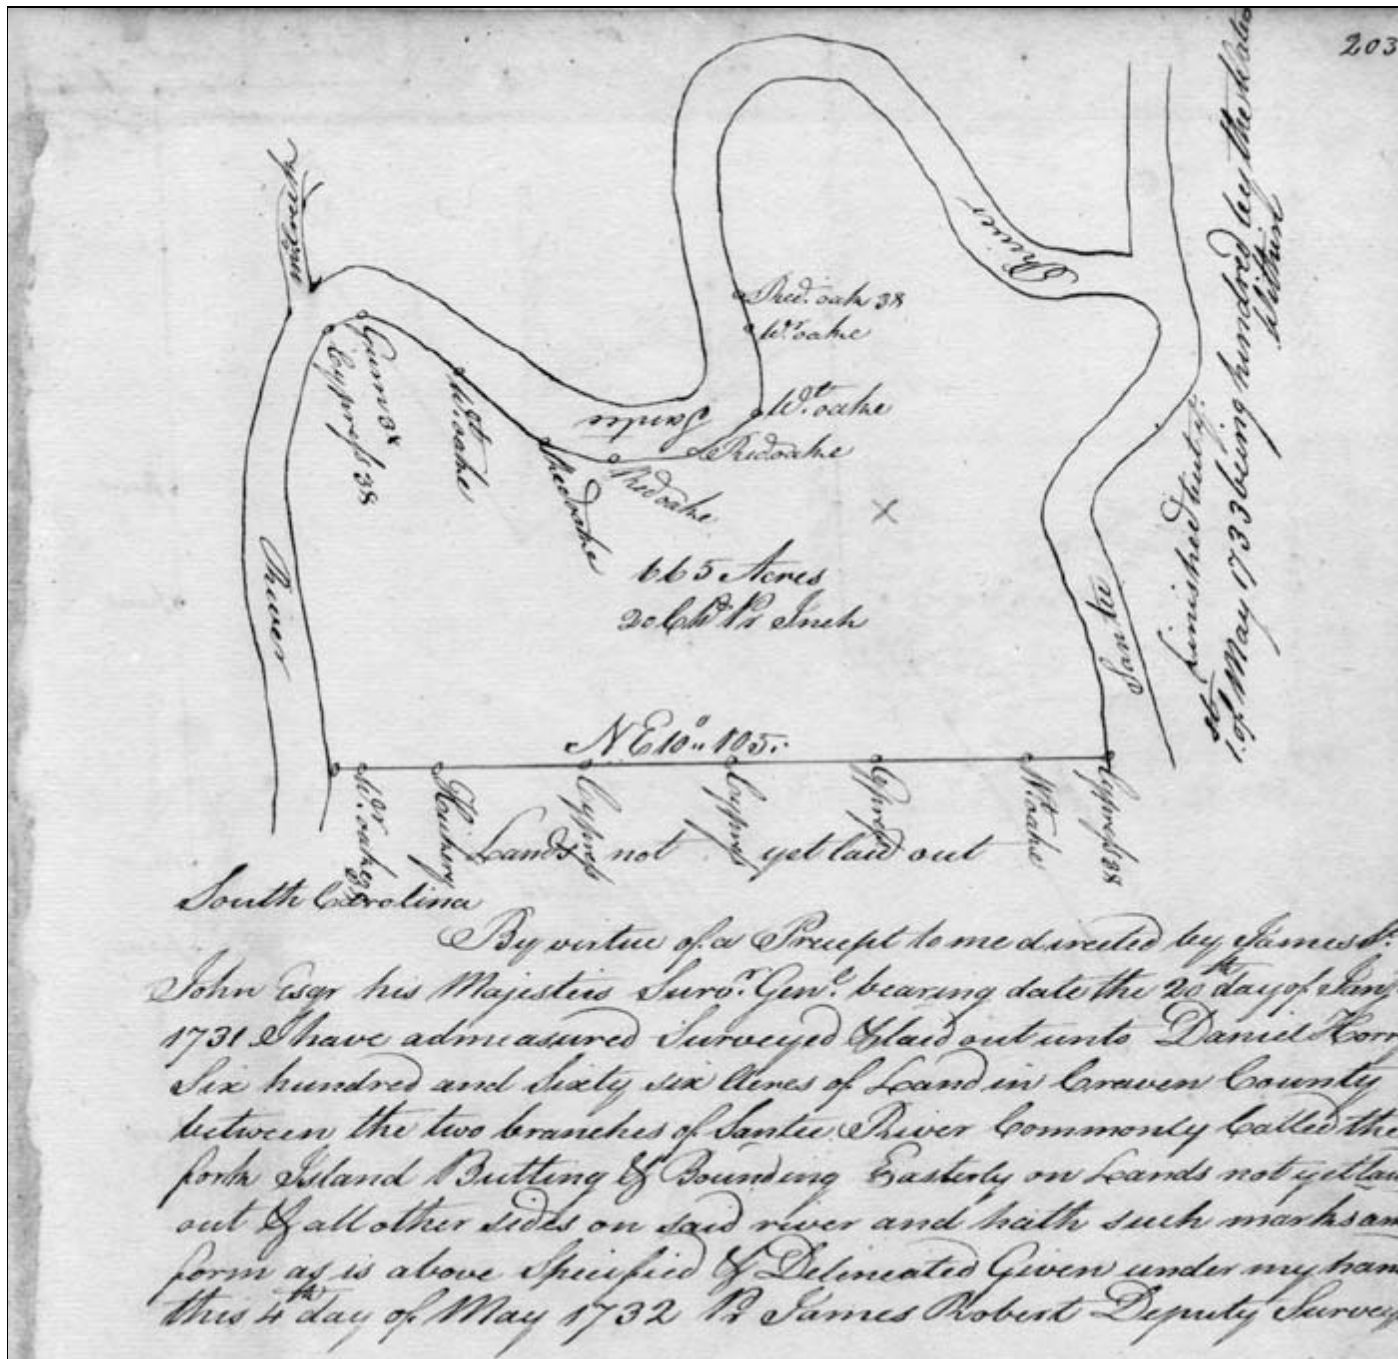 203
River
Red. oak 38
Wr. oake
Wt. oake
Redoake
Santee
Gum 38
Cypress 38
Wt. oake
Redoake
Redoake
665 Acres
20 Chs Pr Inch
River
Santee
finished but ye
1st of May 1733 being hundred by the
Within
N E 10° 105:
Wr. oake 38
Hickery
Cypress
Cypress
Cypress
Wt. oake
Cypress 38
Lands not yet laid out
South Carolina
By virtue of a Precept to me directed by James St.
John Esqr his Majesties Survr. Genl. bearing date the 20th day of Jany
1731 I have admeasured Surveyed & laid out unto Daniel Horr
Six hundred and Sixty six Acres of Land in Craven County
between the two branches of Santee River Commonly Called the
fork Island Butting & Bounding Easterly on Lands not yet lai
out & all other sides on said river and hath such marks an
form as is above Specified & Delineated Given under my han
this 4th day of May 1732 Pr James Robert Deputy Survey